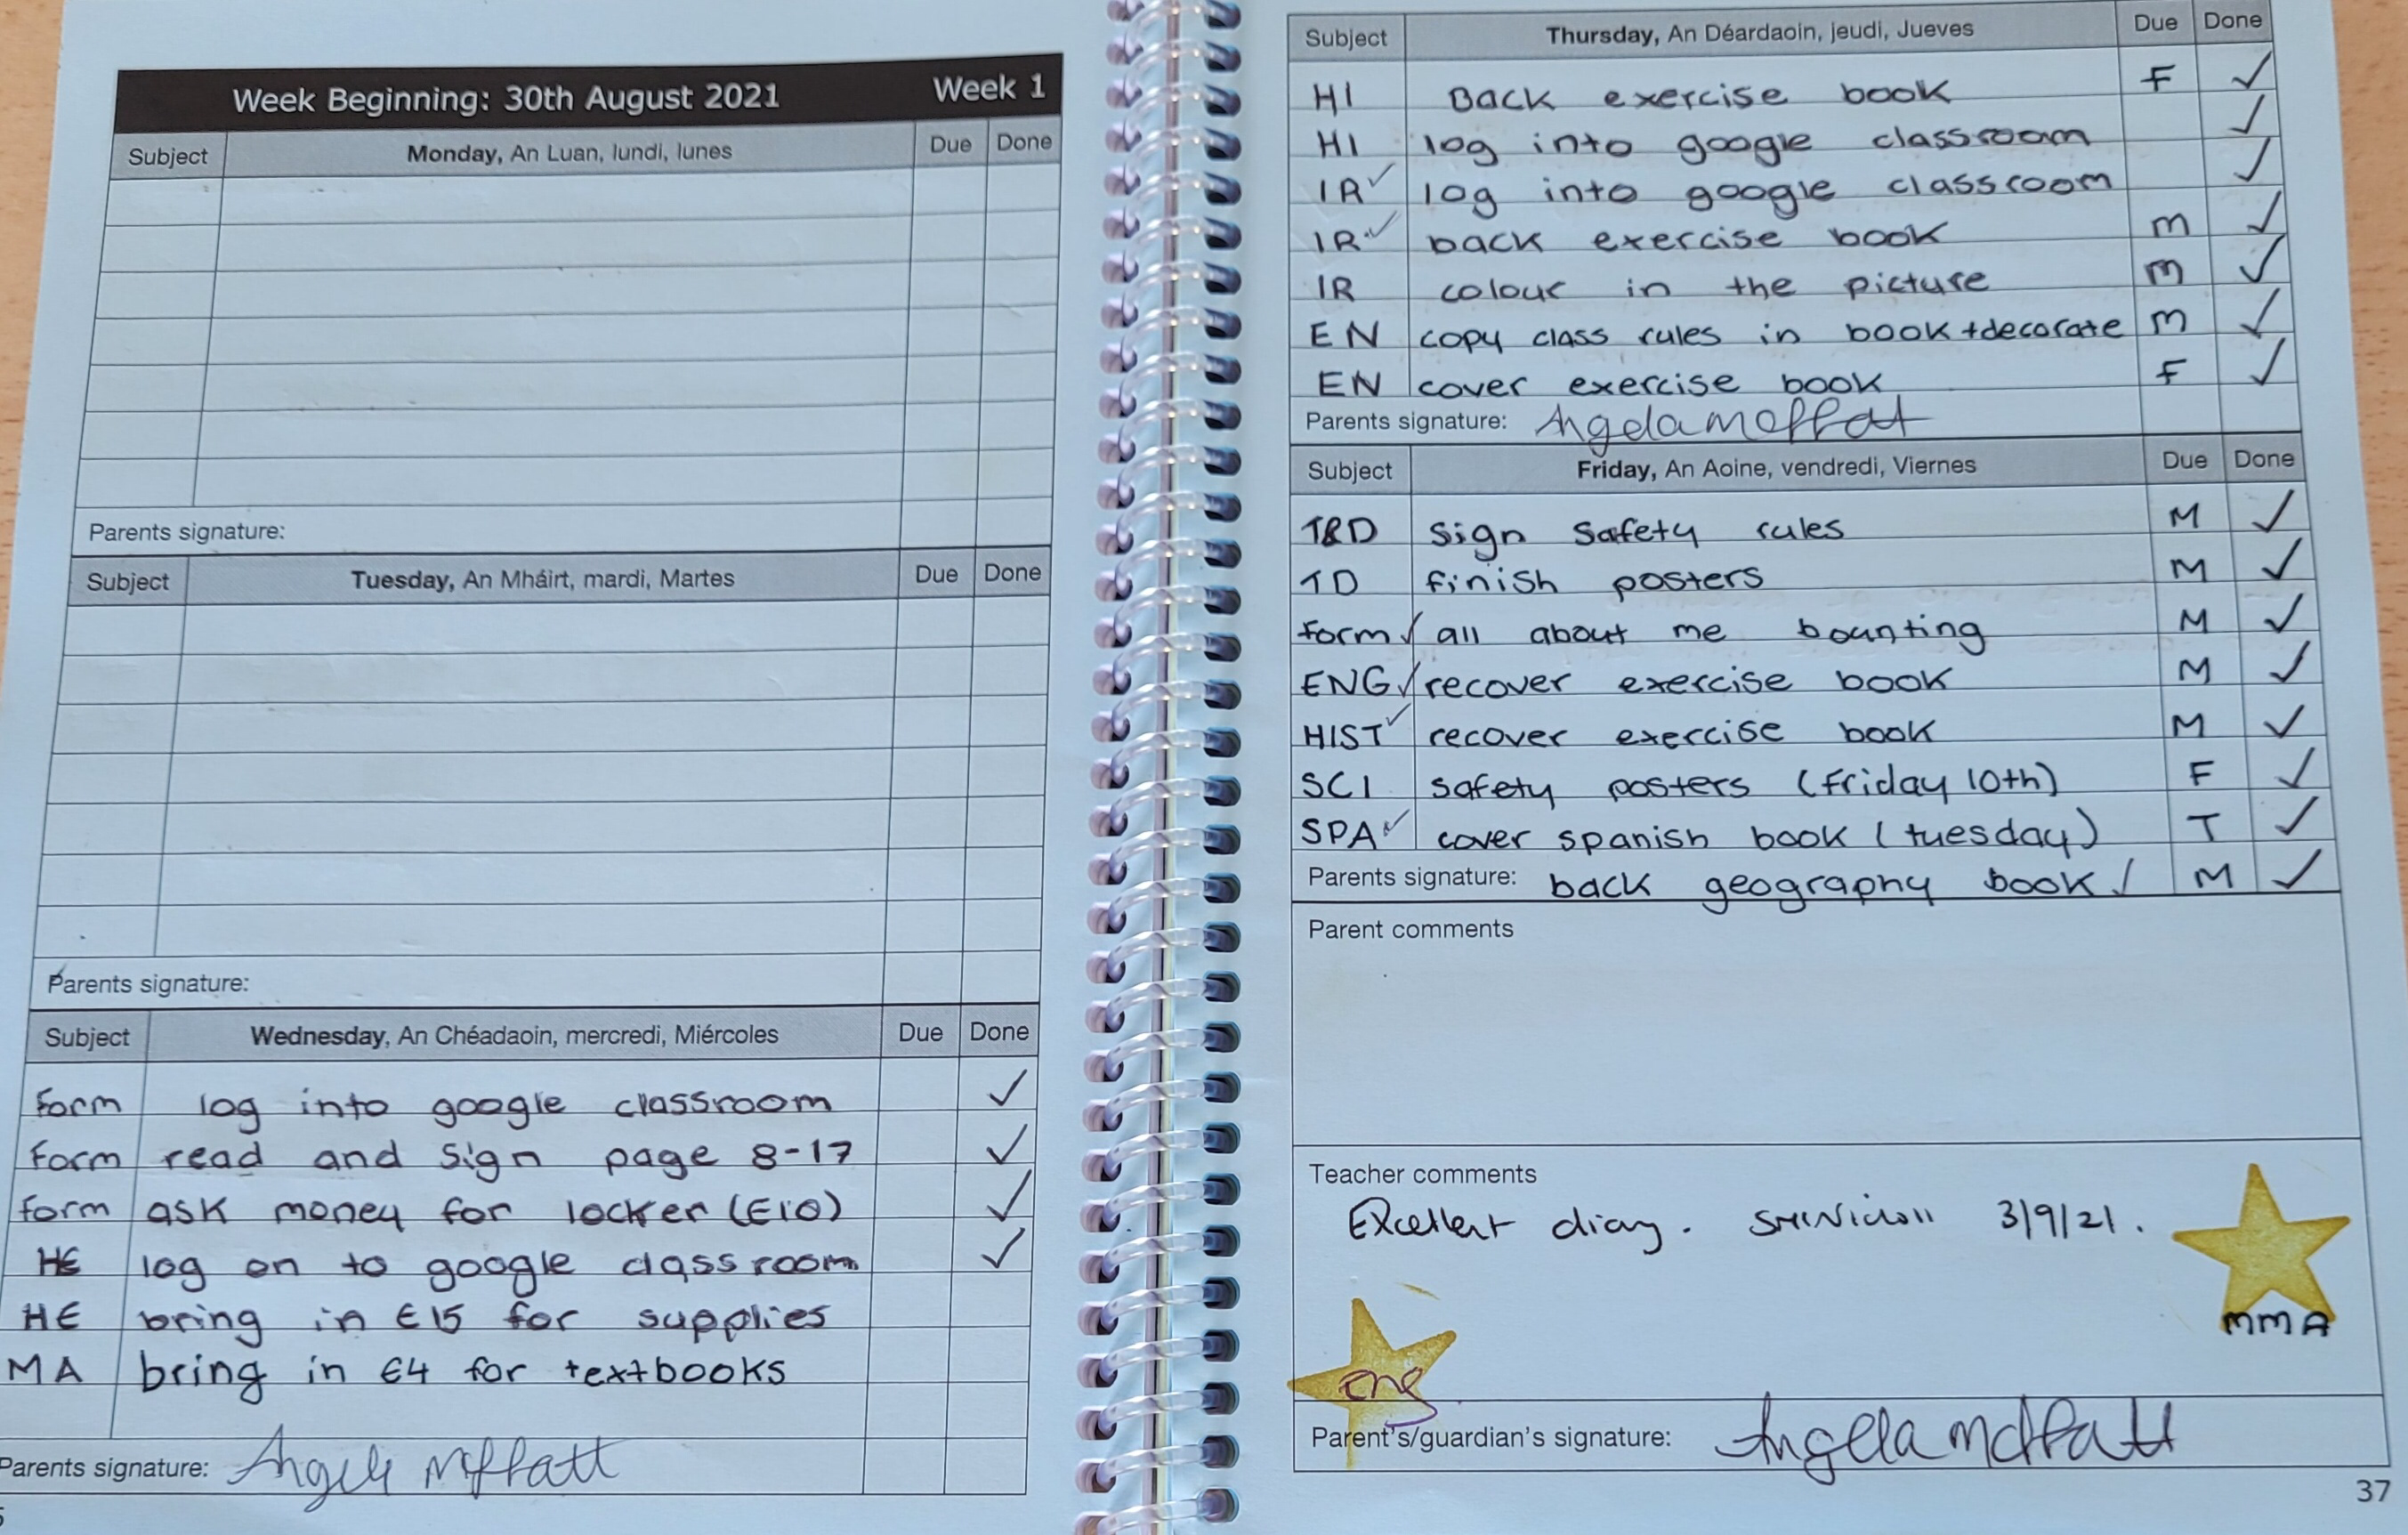 Week Beginning: 30th August 2021 Week 1
Subject Monday, An Luan, lundi, lunes Due Done
Parents signature:
Subject Tuesday, An Mháirt, mardi, Martes Due Done
Parents signature:
Subject Wednesday, An Chéadaoin, mercredi, Miércoles Due Done
Form log into google classroom ✓
Form read and sign page 8-17 ✓
Form ask money for locker (€10) ✓
HE log on to google classroom ✓
HE bring in €15 for supplies
MA bring in €4 for textbooks
Parents signature: Angela Moffatt
Subject Thursday, An Déardaoin, jeudi, Jueves Due Done
HI Back exercise book F ✓
HI log into google classroom ✓
IR ✓ log into google classroom ✓
IR ✓ back exercise book m ✓
IR colour in the picture m ✓
EN copy class rules in book + decorate m ✓
EN cover exercise book F ✓
Parents signature: Angela Moffat
Subject Friday, An Aoine, vendredi, Viernes Due Done
T&D Sign Safety rules M ✓
TD finish posters M ✓
form ✓ all about me bounting M ✓
ENG ✓ recover exercise book M ✓
HIST ✓ recover exercise book M ✓
SCI safety posters (friday 10th) F ✓
SPA ✓ cover spanish book (tuesday) T ✓
Parents signature: back geography book ✓ M ✓
Parent comments
Teacher comments
Excellent diary. 3/9/21.
MMA
Parent's/guardian's signature: Angela Moffatt
37